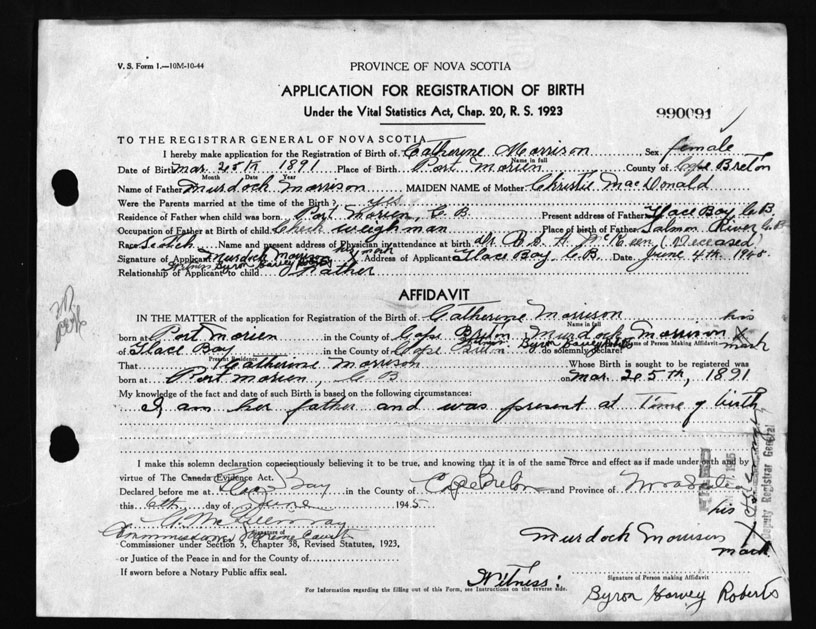 V. S. Form 1.—10M-10-44
PROVINCE OF NOVA SCOTIA
APPLICATION FOR REGISTRATION OF BIRTH
Under the Vital Statistics Act, Chap. 20, R. S. 1923
990091
TO THE REGISTRAR GENERAL OF NOVA SCOTIA
I hereby make application for the Registration of Birth of Catherine Morrison Sex female
Name in full
Date of Birth Mar 25th 1891 Place of Birth Port Morien County of Cape Breton
Month Date Year
Name of Father Murdock Morrison MAIDEN NAME of Mother Christie MacDonald
Were the Parents married at the time of Birth? yes
Residence of Father when child was born Port Morien, C B Present address of Father Glace Bay, C B
Occupation of Father at Birth of child Check weighman Place of birth of Father Salmon River C B
Race Scotch Name and present address of Physician in attendance at birth Dr (Deceased)
his mark
Signature of Applicant Murdock Morrison X Address of Applicant Glace Bay, C B. Date June 4th
Witness Byron Harvey
Relationship of Applicant to child Father
AFFIDAVIT
IN THE MATTER of the application for Registration of the Birth of Catherine Morrison his
Name in full
born at Port Morien in the County of Cape Breton Murdock Morrison X
Name of Person Making Affidavit
of Glace Bay in the County of Cape Breton do solemnly declare: mark
Present Residence
That Catherine Morrison Whose Birth is sought to be registered was
born at Port Morien, C B on Mar 25th, 1891
My knowledge of the fact and date of such Birth is based on the following circumstances:
I am her father and was present at time of birth
I make this solemn declaration conscientiously believing it to be true, and knowing that it is of the same force and effect as if made under oath and by
virtue of The Canada Evidence Act.
Declared before me at Glace Bay in the County of Cape Breton and Province of Nova Scotia
this day of June 1945
his
Murdock Morrison X
mark
Signature of
Commissioner Supreme Court
Commissioner under Section 3, Chapter 38, Revised Statutes, 1923,
or Justice of the Peace in and for the County of
If sworn before a Notary Public affix seal.
Signature of Person making Affidavit
Witness: Byron Harvey Roberts
For Information regarding the filling out of this Form, see Instructions on the reverse side.
Deputy Registrar General